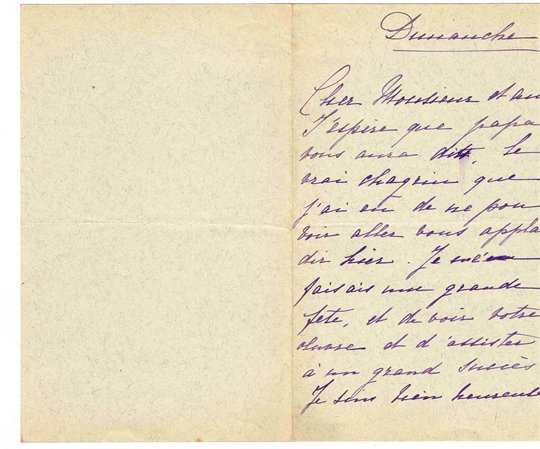 Dimanche
Cher Monsieur et am
J'espère que papa
vous aura dit, le
vrai chagrin que
j'ai eu de ne pou
voir aller vous appla
dir hier. Je m'en
faisais une grande
fête, et de voir votre
œuvre et d'assister
à un grand succès
Je suis bien heureuse